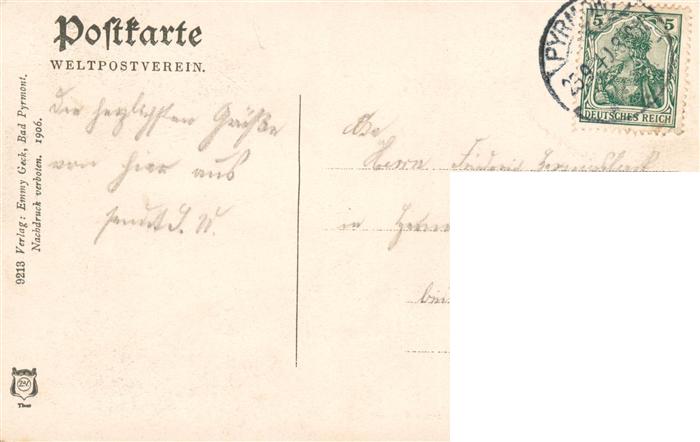 Postkarte
WELTPOSTVEREIN.
9213 Verlag: Emmy Geck, Bad Pyrmont.
Nachdruck verboten. 1906.
Die herzlichsten Grüße
von hier aus
sendet J. W.
PYRMONT
5 5
DEUTSCHES REICH
Herrn
in
bei